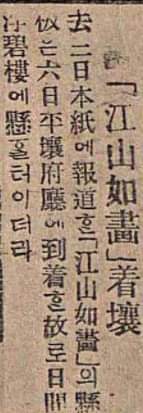 「江山如畵」着壤
去二日本紙에報道ᄒᆞᆫ「江山如畵」의懸
板은六日平壤府廳에到着ᄒᆞᆫ故로日間
浮碧樓에懸ᄒᆞᆯ터이더라